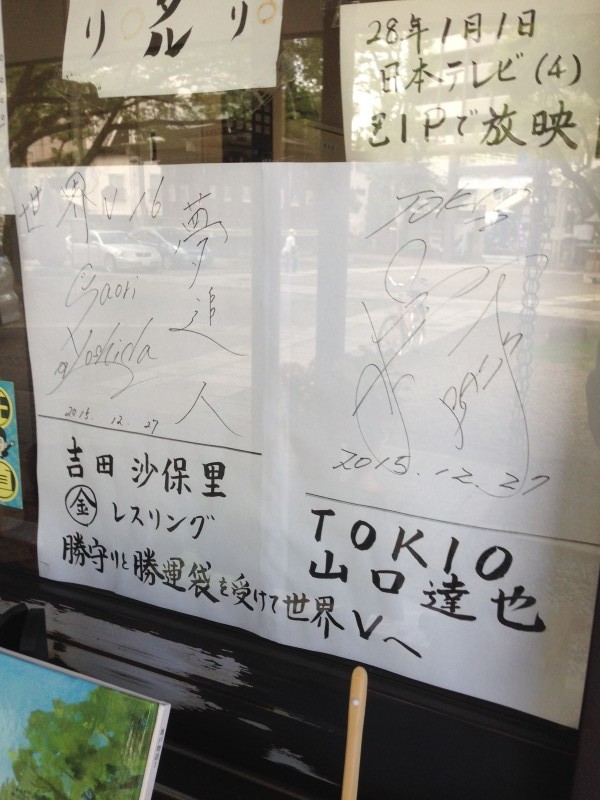 り タル り
28年1月1日
日本テレビ(4)
でIPで放映
世界V16
夢追人
Saori
Yoshida
2015.12.27
吉田 沙保里
金 レスリング
勝守りと勝運袋を受けて世界Vへ
TOKIO
2015.12.27
TOKIO
山口達也